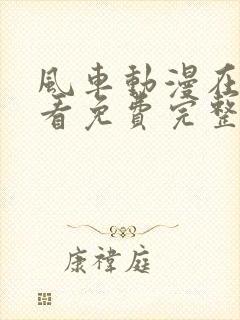 風車動漫在
看免費完整
康禕庭